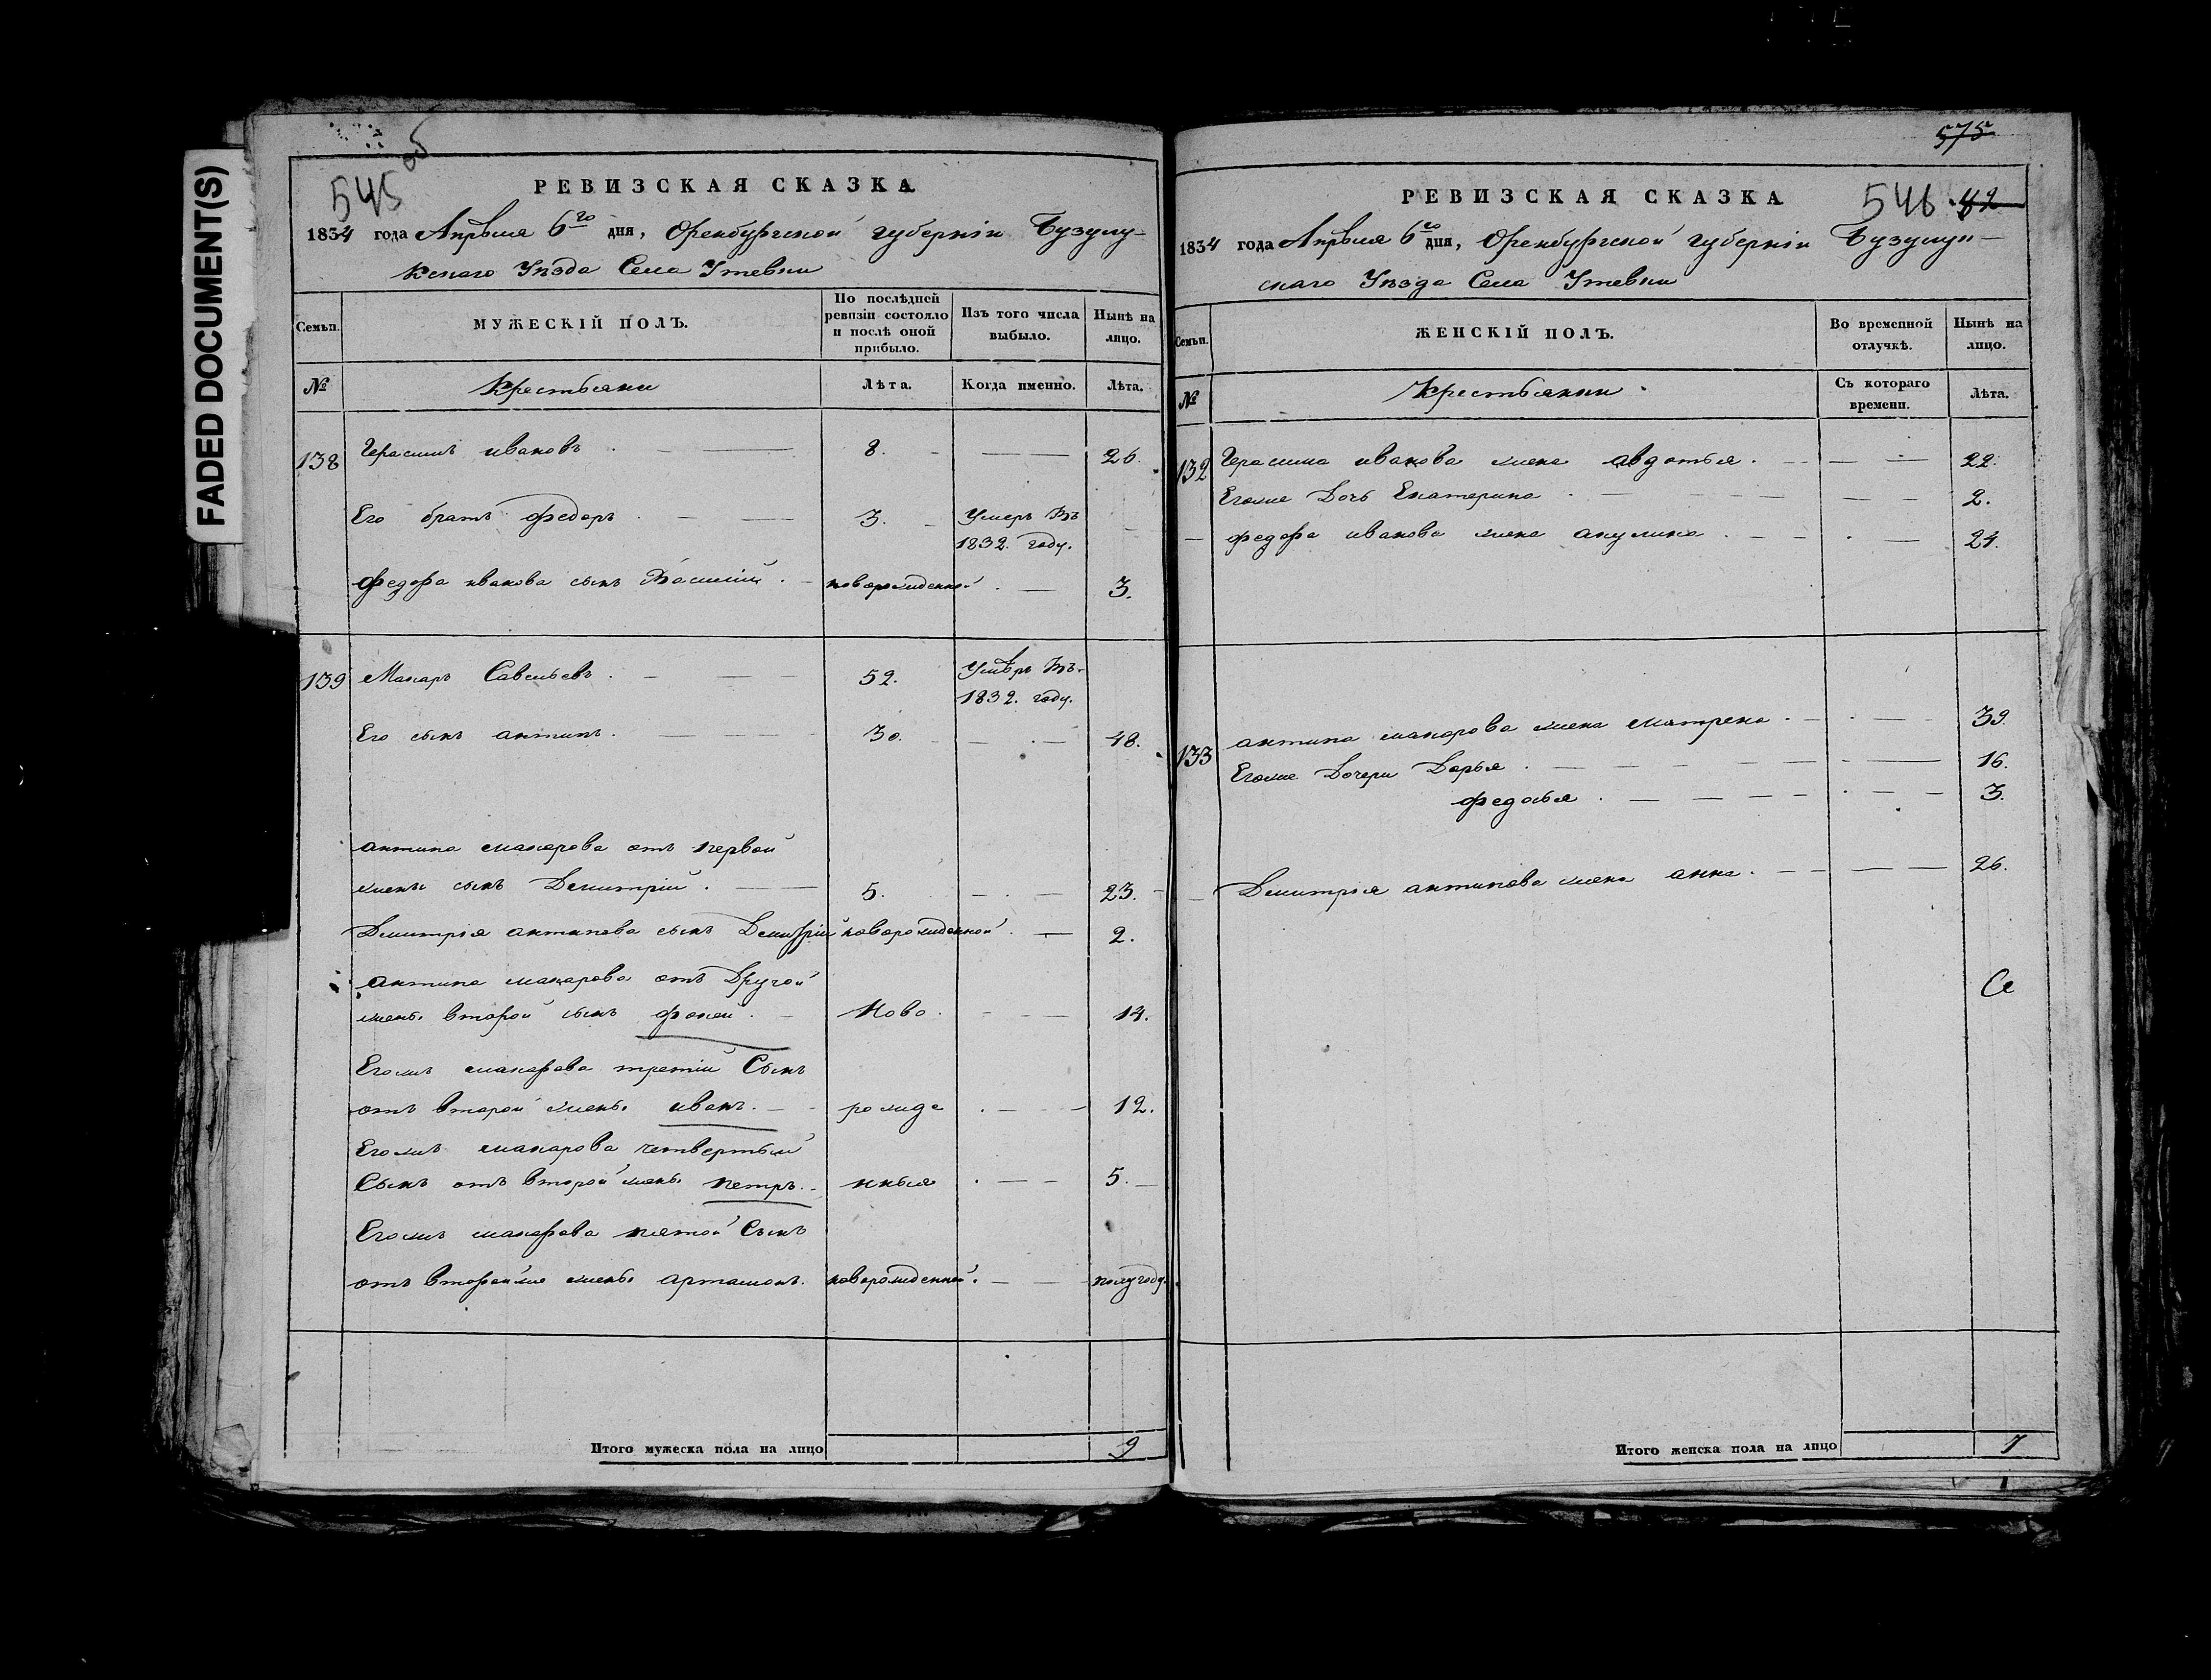 FADED DOCUMENT(S)
545 об
РЕВИЗСКАЯ СКАЗКА
1834 года Апреля 6го дня, Оренбургской губернiи Бузулу-
кскаго Уѣзда Села Утевки
Семьи.
МУЖЕСКІЙ ПОЛЪ.
По послѣдней ревизіи состояло и послѣ оной прибыло.
Изъ того числа выбыло.
Нынѣ на лицо.
№
Крестьяни
Лѣта.
Когда именно.
Лѣта.
138 Герасимъ ивановъ 8. 26.
Его братъ федоръ 3. Умеръ въ
1832. году.
федора иванова сынъ Василий новорожденной 3.
139 Макаръ Савельевъ 52. Умеръ въ
1832. году.
Его сынъ антипъ 30. 48.
антипа макарова отъ первой
жены сынъ Демитрій 5. 23.
Демитрия антипова сынъ Демитрій новорожденной 2.
антипа макарова отъ Другой
жены второй сынъ фокей Ново 14.
Егожъ макарова третiй Сынъ
отъ второй жены иванъ рожде 12.
Егожъ макарова четвертый
Сынъ отъ второй жены петръ нныя 5.
Егожъ макарова пятой Сынъ
отъ второйже жены артамонъ новорожденной полугоду
Итого мужеска пола на лицо 9
575
РЕВИЗСКАЯ СКАЗКА
546 82
1834 года Апреля 6го дня, Оренбургской губернiи Бузулук-
скаго Уѣзда Села Утевки
Семьи.
ЖЕНСКІЙ ПОЛЪ.
Во временной отлучкѣ.
Нынѣ на лицо.
№
Крестьянки
Съ котораго времени.
Лѣта.
132 Герасима иванова жена авдотья 22.
Егоже Дочь Екатерина 2.
федора иванова жена акулина 24.
133 антипа макарова жена матрена 39.
Егоже Дочери Дарья 16.
федосья 3.
Демитрия антипова жена анна 26.
Итого женска пола на лицо 7